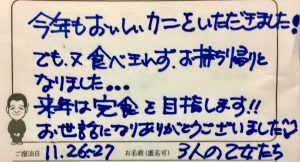 今年もおいしいカニをいただきました!
でも、又食べきれず、お持ち帰りと
なりました...
来年は完食を目指します!!
お世話になりありがとうございました♡
ご宿泊日 11.26~27 お名前(匿名可) 3人の乙女たち